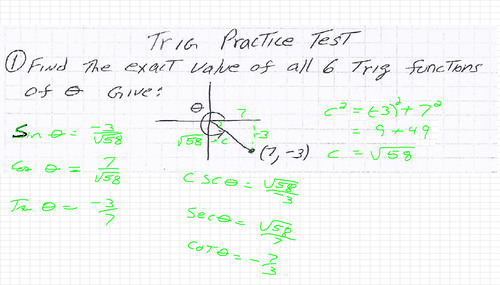 Trig Practice Test
① Find the exact value of all 6 Trig functions
of θ Give:
θ
7
-3
√58 = C
(7, -3)
c² = (-3)² + 7²
= 9 + 49
c = √58
Sin θ = -3/√58
Cos θ = 7/√58
Tn θ = -3/7
CSC θ = √58/-3
Sec θ = √58/7
COT θ = -7/3